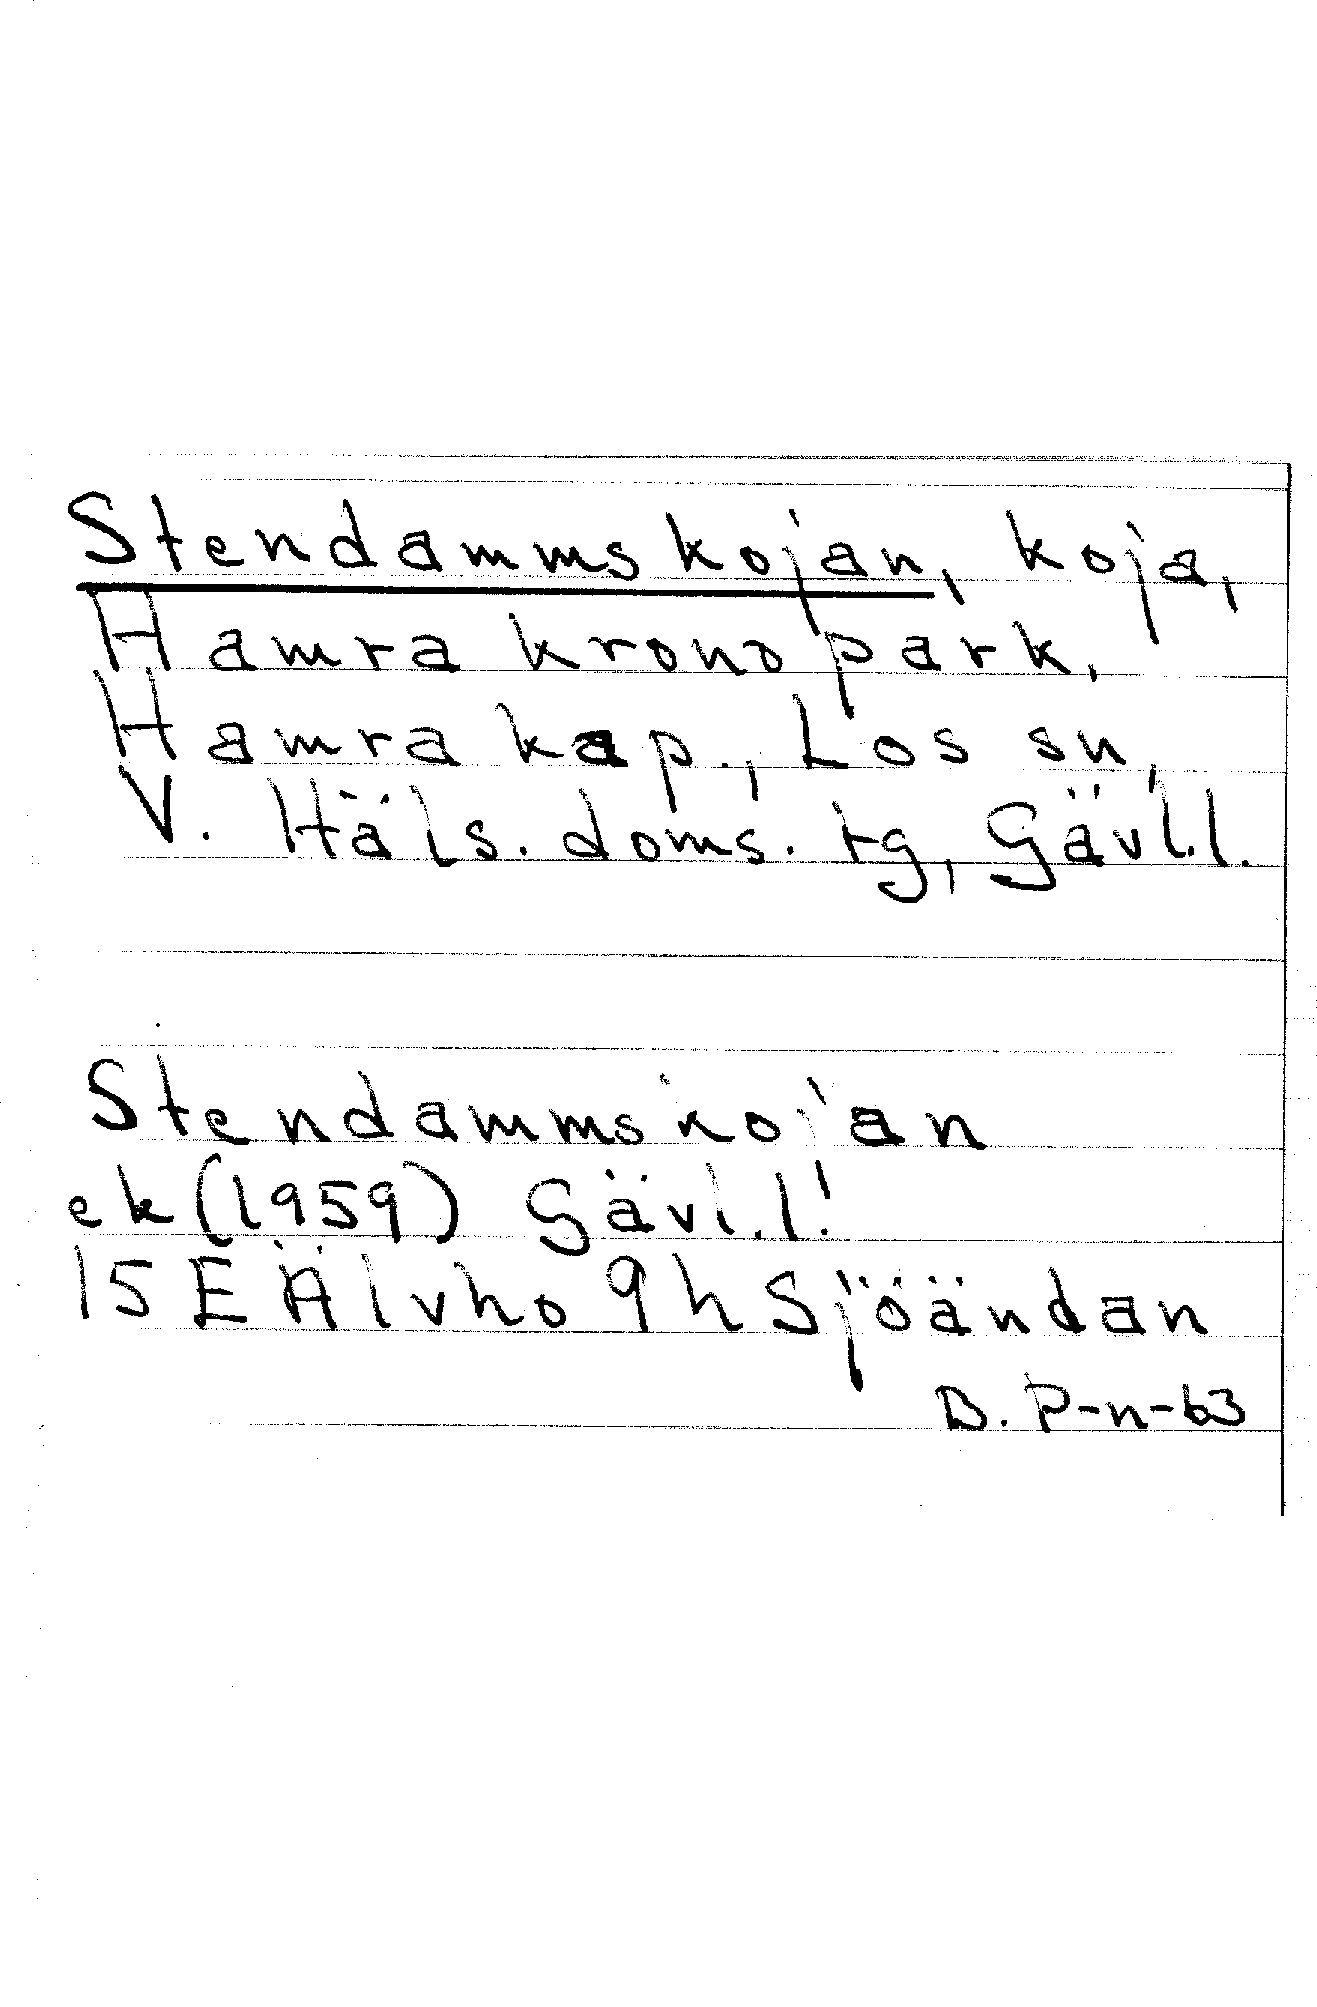 Stendammskojan, koja,
Hamra kronopark,
Hamra kap., Los sn,
V. Häls. doms. tg, Gävl.l.
Stendammskojan
ek (1959) Gävl.l!
15 E Älvho 9 h Sjöändan
B. P-n-63